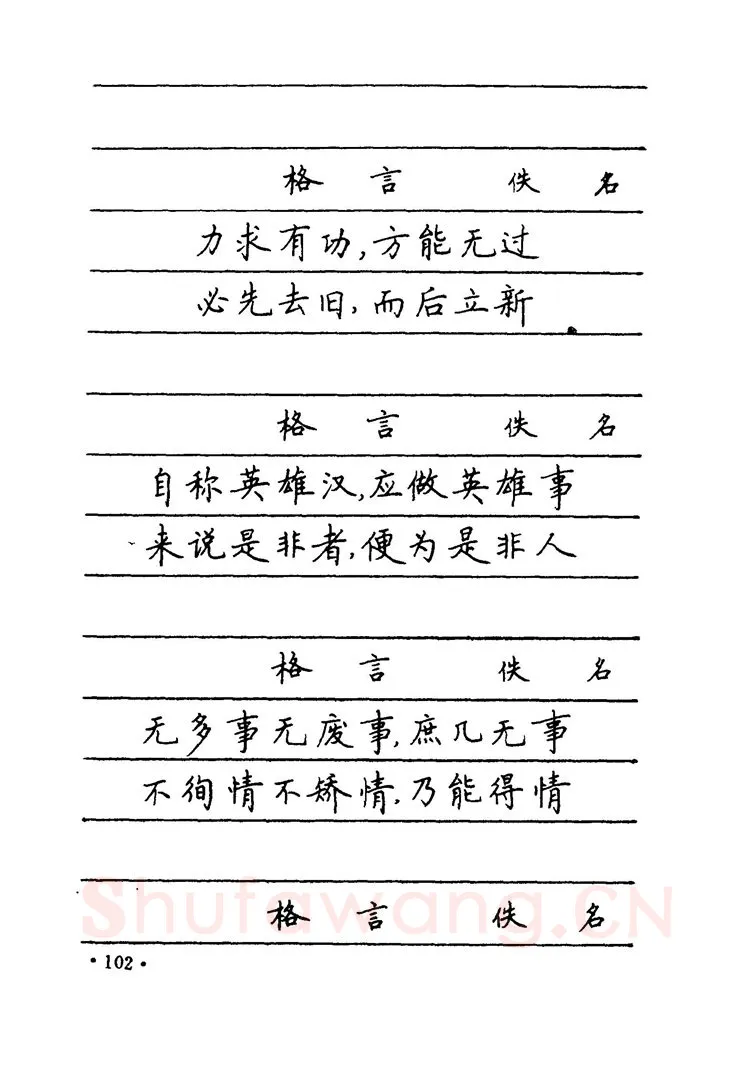 格言 佚名
力求有功,方能无过
必先去旧,而后立新
格言 佚名
自称英雄汉,应做英雄事
来说是非者,便为是非人
格言 佚名
无多事无废事,庶几无事
不徇情不矫情,乃能得情
格言 佚名
Shufawang.CN
·102·